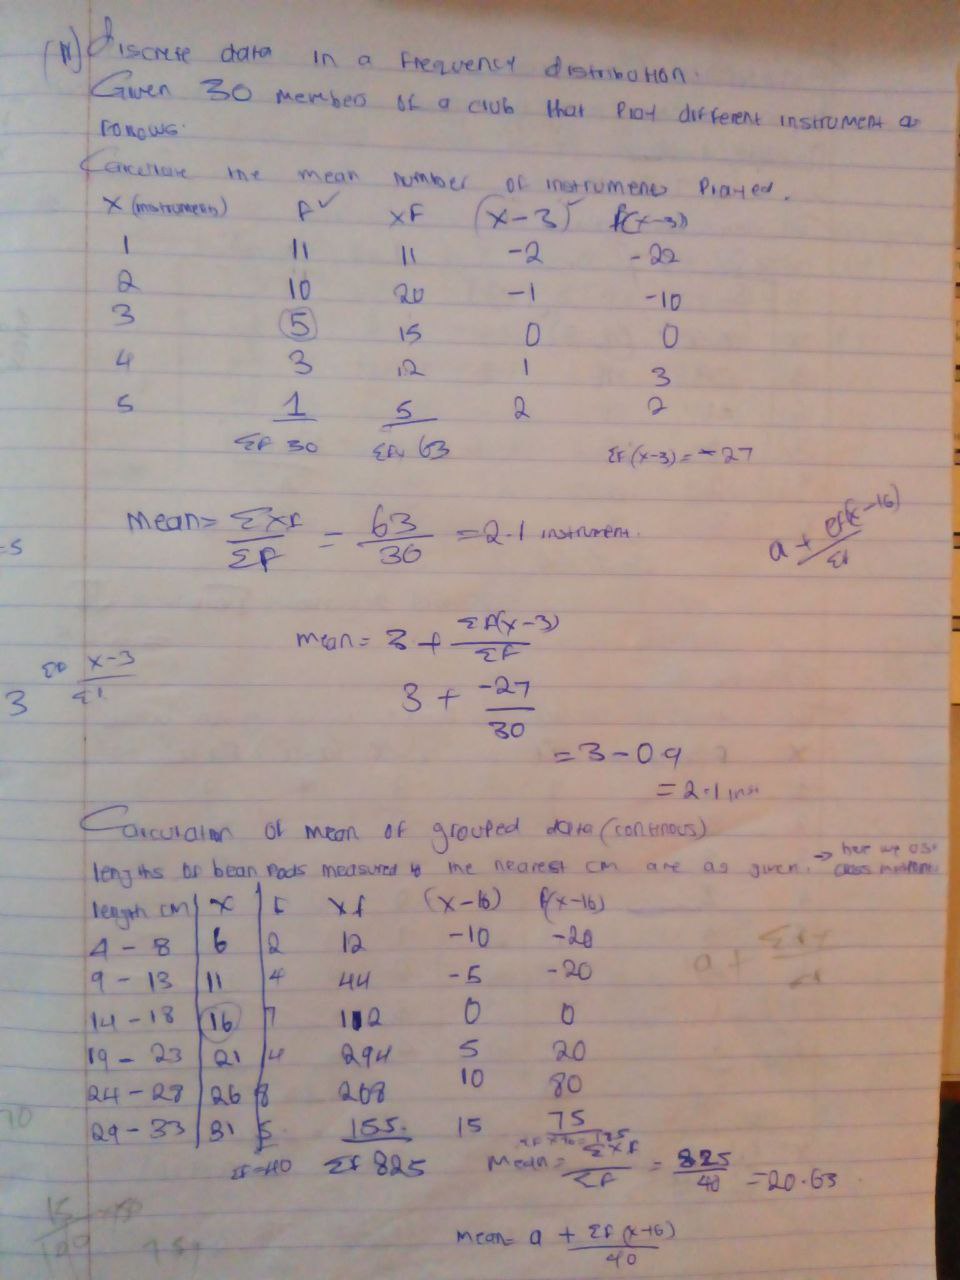 (ii) Discrete data in a frequency distribution.
Given 30 member of a club that Play different instrument as
follows.
Calculate the mean number of instruments Played.
X (instruments) f ✓ xf (x-3) f(x-3)
1 11 11 -2 -22
2 10 20 -1 -10
3 5 15 0 0
4 3 12 1 3
5 1 5 2 2
Σf 30 Σfx 63 Σf(x-3) = -27
Mean = Σxf/Σf = 63/30 = 2.1 instrument.
a + Σf(x-16)/Σf
-5
mean = 3 + Σf(x-3)/Σf
3 Σf x-3/Σf
3 + -27/30
= 3 - 0.9
= 2.1 inst
Calculation of mean of grouped data (continous)
lengths of bean pods measured to the nearest cm are as given. → here we use
class midpoint.
length cm x f xf (x-16) f(x-16)
4 - 8 6 2 12 -10 -20
9 - 13 11 4 44 -5 -20
14 - 18 16 7 112 0 0
19 - 23 21 4 294 5 20
24 - 28 26 8 208 10 80
29 - 33 31 5 155 15 75
Σf=40 Σf 825 Mean = Σxf/Σf = 825/40 = 20.63
mean = a + Σf(x-16)/40